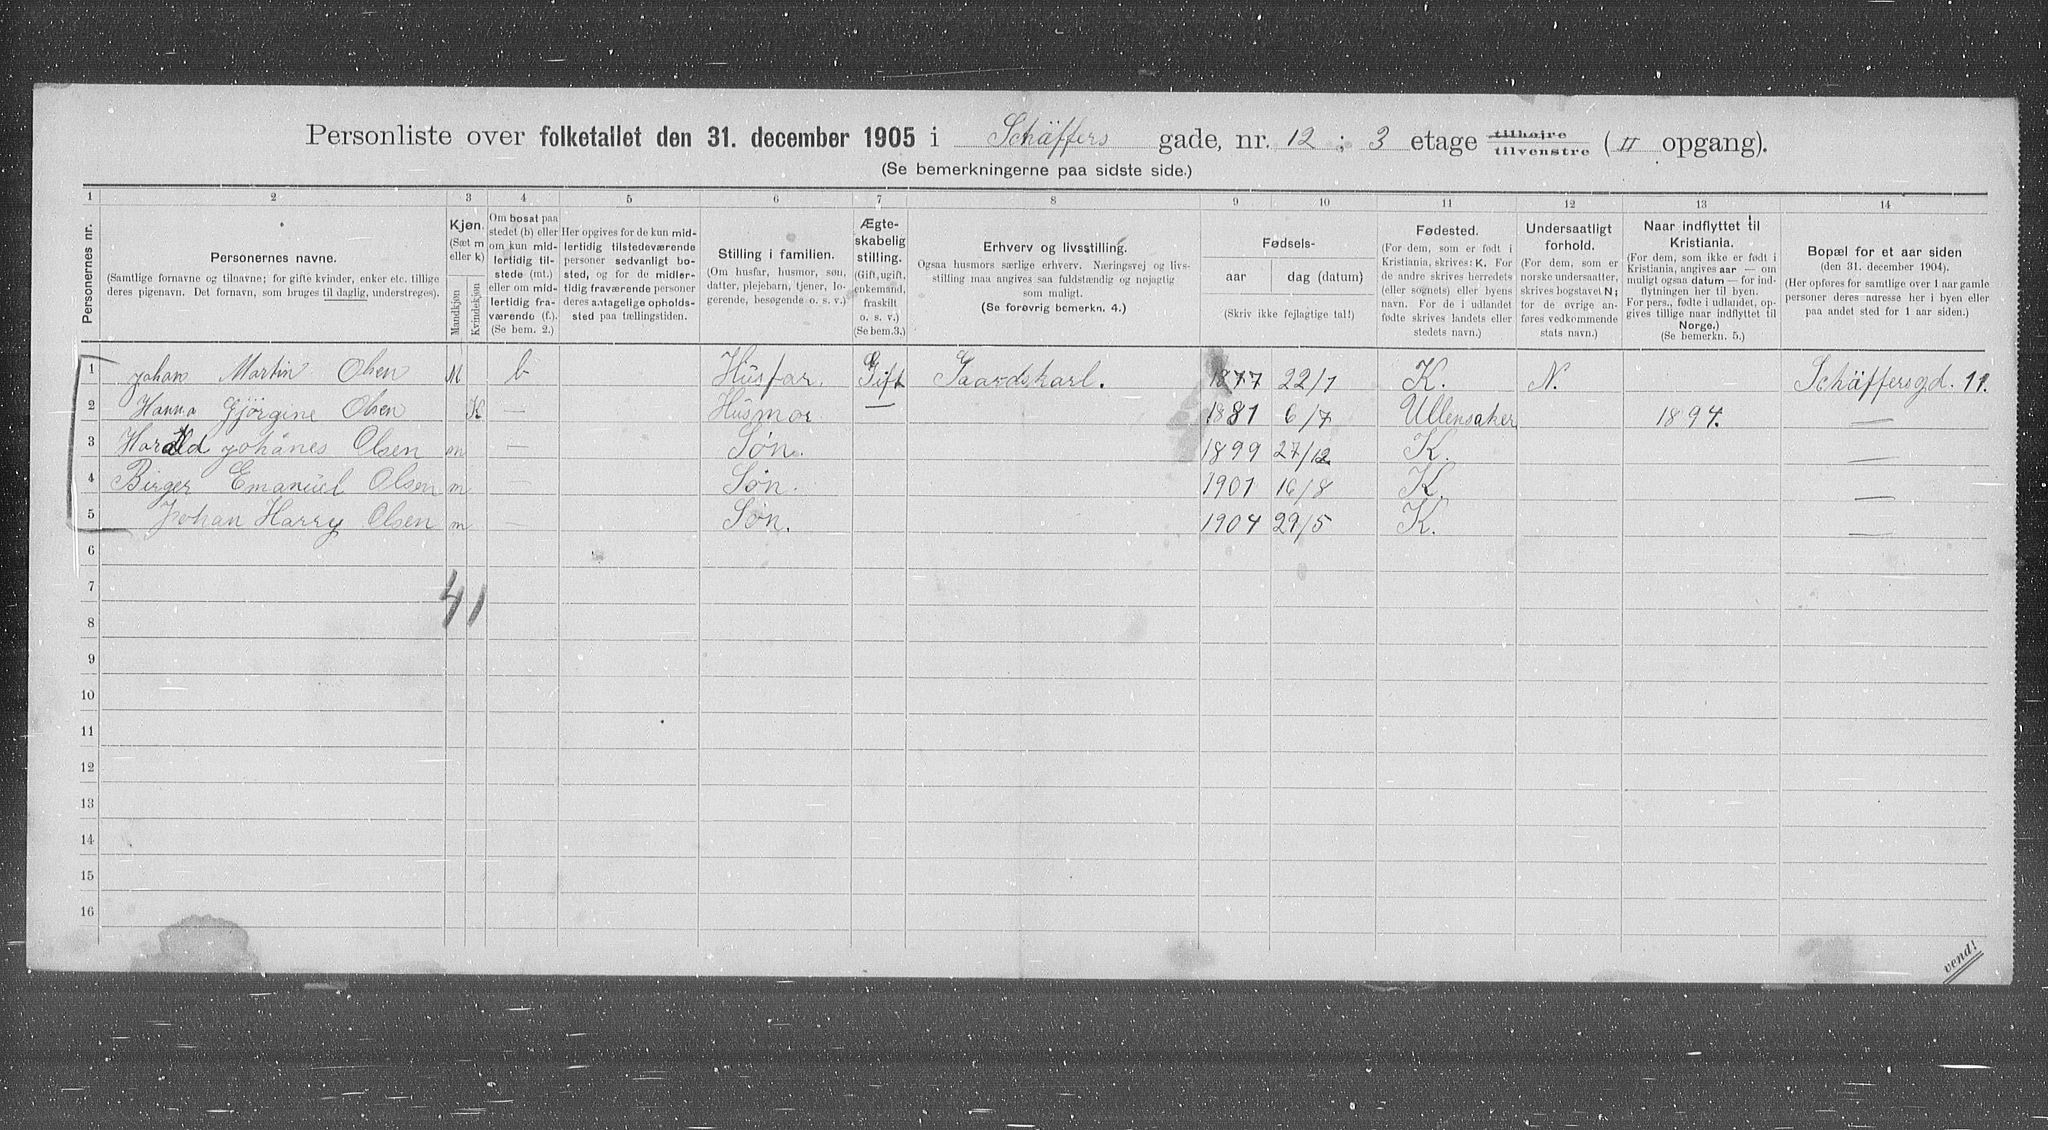 Personliste over folketallet den 31. december 1905 i Schäffers gade, nr. 12 ; 3 etage tilhøire tilvenstre ( II opgang).
(Se bemerkningerne paa sidste side.)
1 2 3 4 5 6 7 8 9 10 11 12 13 14
Personernes nr.
Personernes navne.
(Samtlige fornavne og tilnavne; for gifte kvinder, enker etc. tillige deres pigenavn. Det fornavn, som bruges til daglig, understreges).
Kjøn. (Sæt m eller k)
Mandkjøn
Kvindekjøn
Om bosat paa stedet (b) eller om kun midlertidig tilstede (mt.) eller om midlertidig fraværende (f.). (Se bem. 2.)
Her opgives for de kun midlertidig tilstedeværende personer sedvanlig bosted, og for de midlertidig fraværende personer deres antagelige opholdssted paa tællingstiden.
Stilling i familien.
(Om husfar, husmor, søn, datter, plejebarn, tjener, logerende, besøgende o. s. v.)
Ægteskabelig stilling.
(Gift, ugift, enkemand, fraskilt o. s. v.) (Se bem. 3.)
Erhverv og livsstilling.
Ogsaa husmors særlige erhverv. Næringsvej og livsstilling maa angives saa fuldstændig og nøjagtig som muligt.
(Se forøvrig bemerkn. 4.)
Fødsels-
aar dag (datum)
(Skriv ikke fejlagtige tal!)
Fødested.
(For dem, som er født i Kristiania, skrives: K. For de andre skrives herredets (eller sognets) eller byens navn. For de i udlandet fødte skrives landets eller stedets navn.)
Undersaatligt forhold.
(For dem, som er norske undersaatter, skrives bogstavet N; for de øvrige anføres vedkommende stats navn.)
Naar indflyttet til Kristiania.
(For dem, som ikke er født i Kristiania, angives aar — om muligt ogsaa datum — for indflytningen her til byen. For pers., fødte i udlandet, opgives tillige naar indflyttet til Norge.)
(Se bemerkn. 5.)
Bopæl for et aar siden
(den 31. december 1904).
(Her opføres for samtlige over 1 aar gamle personer deres adresse her i byen eller paa andet sted for 1 aar siden.)
1 Johan Martin Olsen M b Husfar. Gift Gaardskarl. 1877 22/1 K. N. Schäffersgd. 11.
2 Hanna Gjørgine Olsen K — Husmor — 1881 6/7 Ullensaker 1894. —
3 Harald Johânes Olsen m — Søn. 1899 27/12 K. —
4 Birger Emanuel Olsen m — Søn. 1901 16/8 K. —
5 Johan Harry Olsen m — Søn. 1904 29/5 K. —
6
7
41
8
9
10
11
12
13
14
15
16
vend!